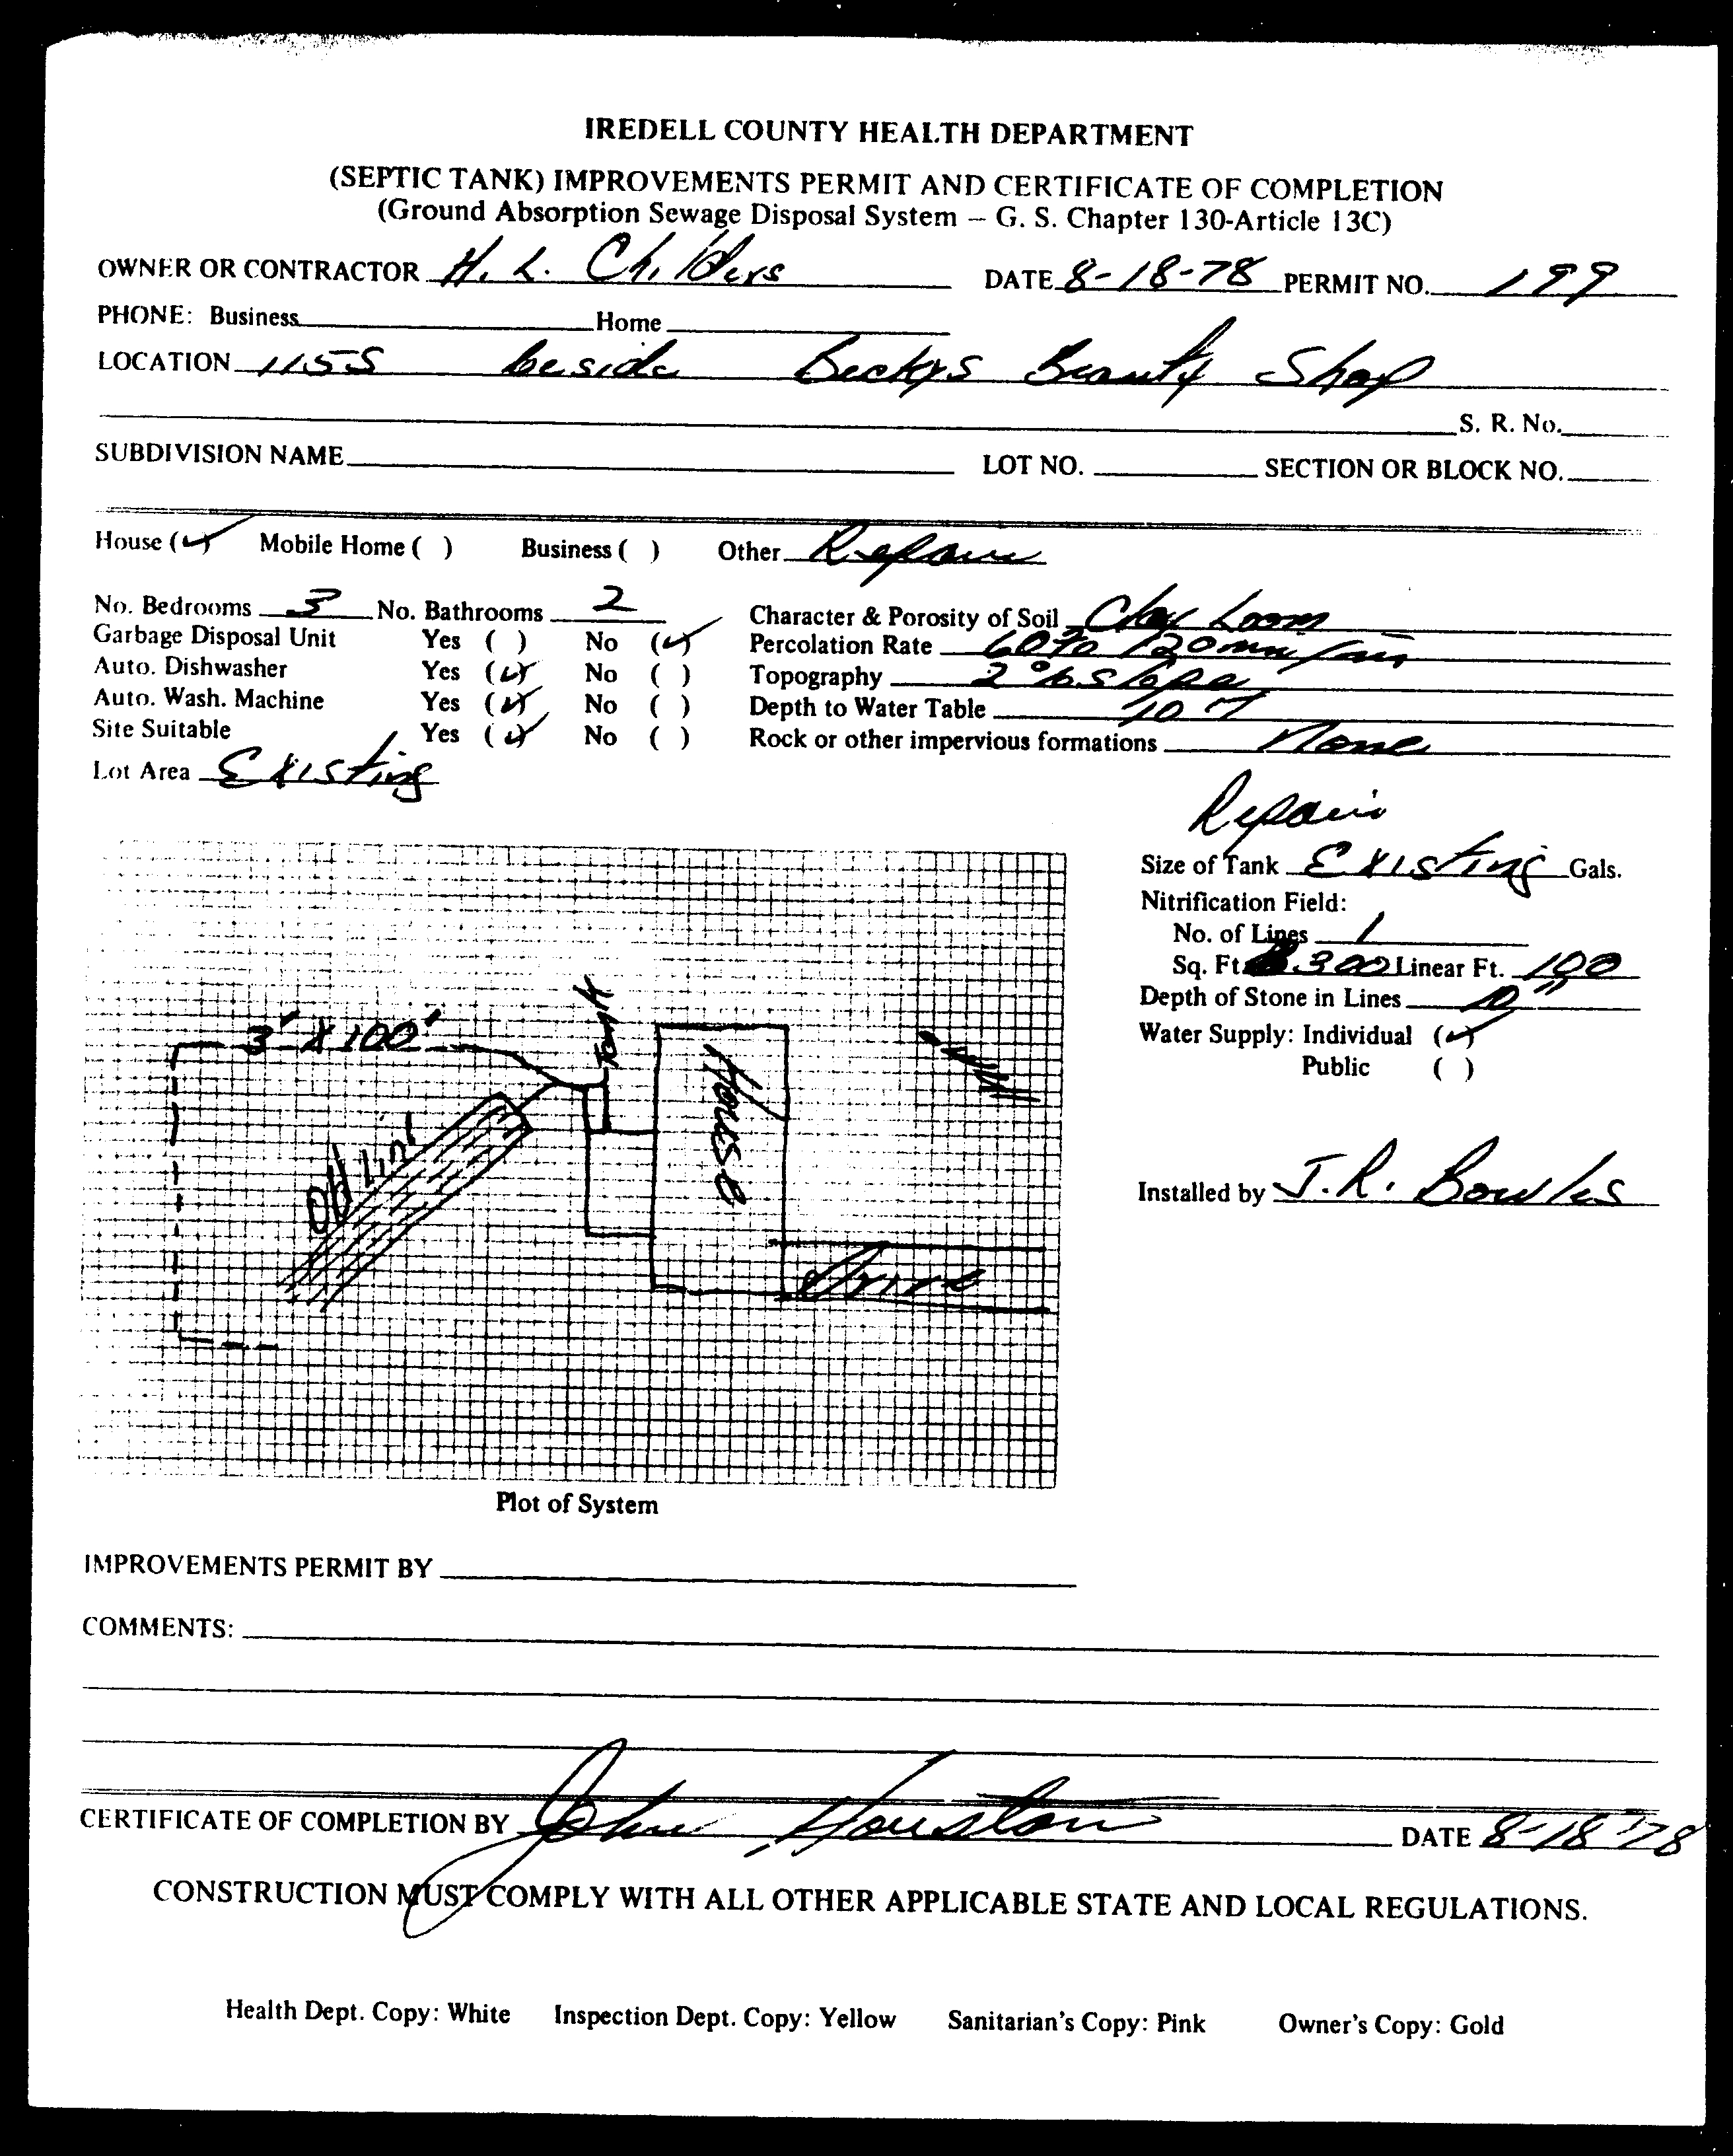 IREDELL COUNTY HEALTH DEPARTMENT
(SEPTIC TANK) IMPROVEMENTS PERMIT AND CERTIFICATE OF COMPLETION
(Ground Absorption Sewage Disposal System – G. S. Chapter 130-Article 13C)
OWNER OR CONTRACTOR H. L. Childers DATE 8-18-78 PERMIT NO. 199
PHONE: Business Home
LOCATION 115S beside Beckys Beauty Shop
S. R. No.
SUBDIVISION NAME LOT NO. SECTION OR BLOCK NO.
House (✓) Mobile Home ( ) Business ( ) Other Repair
No. Bedrooms 3 No. Bathrooms 2 Character & Porosity of Soil Clay Loom
Garbage Disposal Unit Yes ( ) No (✓) Percolation Rate 60 to 120 min/in
Auto. Dishwasher Yes (✓) No ( ) Topography 2% slope
Auto. Wash. Machine Yes (✓) No ( ) Depth to Water Table 10
Site Suitable Yes (✓) No ( ) Rock or other impervious formations None
Lot Area Existing
Repair
Size of Tank Existing Gals.
Nitrification Field:
No. of Lines 1
Sq. Ft. 300 Linear Ft. 100
Depth of Stone in Lines 10"
Water Supply: Individual (✓)
Public ( )
Installed by J.R. Bowles
3' X 100'
Tank
House
Well
Old line
Drive
Plot of System
IMPROVEMENTS PERMIT BY
COMMENTS:
CERTIFICATE OF COMPLETION BY John Houston DATE 8-18-78
CONSTRUCTION MUST COMPLY WITH ALL OTHER APPLICABLE STATE AND LOCAL REGULATIONS.
Health Dept. Copy: White Inspection Dept. Copy: Yellow Sanitarian's Copy: Pink Owner's Copy: Gold